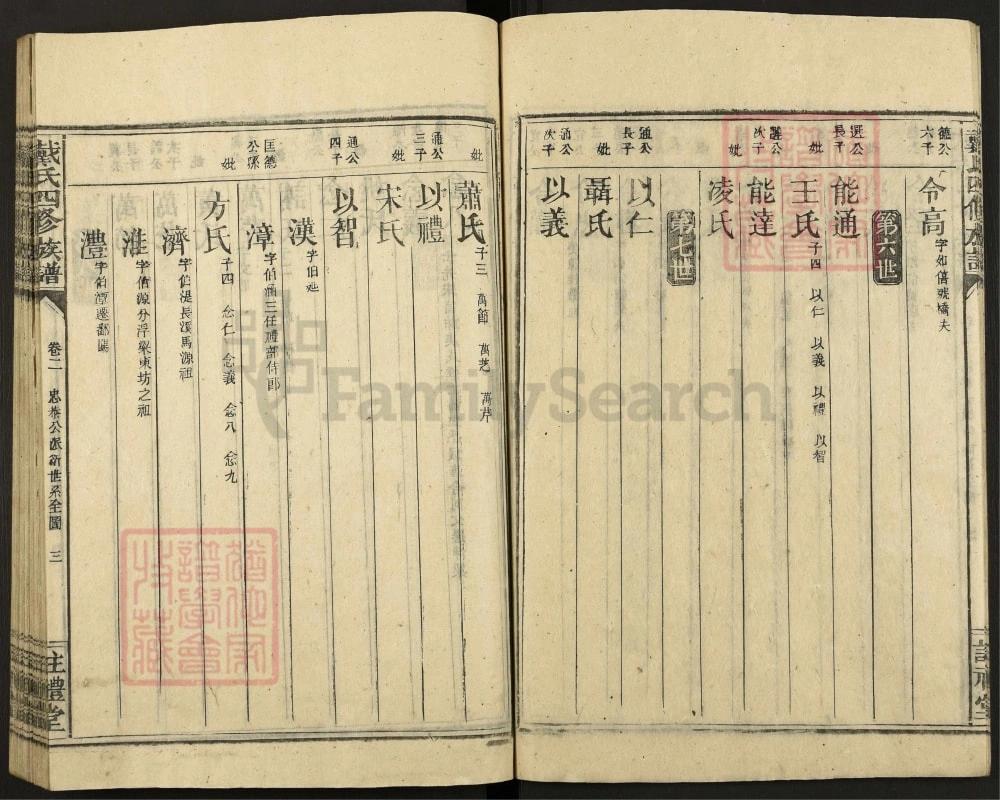 德公六子 令高 字如僖號橋夫
第六世
選公長子 能通
妣 王氏 子四 以仁 以義 以禮 以智
選公次子 能達
妣 凌氏
第七世
通公長子 以仁
妣 聶氏
通公次子 以義
妣 蕭氏 子三 萬節 萬芝 萬芹
通公三子 以禮
妣 宋氏
通公四子 以智
漢
匡德公孫 漳 字伯涵三任禮部侍郎
妣 方氏 子四 念仁 念義 念八 念九
濟 字伯湜長溪馬源祖
淮 字伯源分浮梁東坊之祖
澧 字伯潭遷鄱陽
戴氏四修族譜
卷二
公派新世系全圖 三
注禮堂
FamilySearch
猶他家譜學會收藏